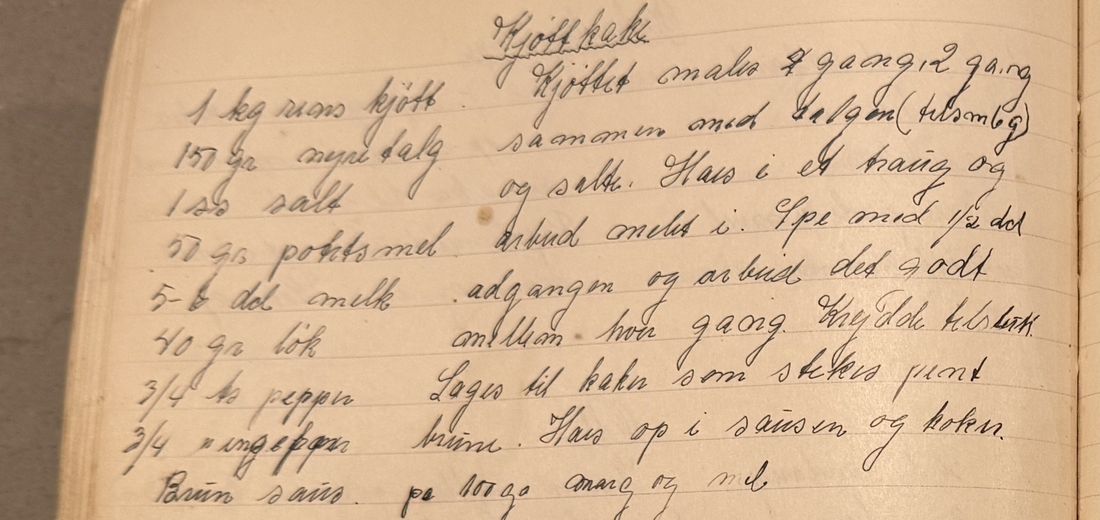 Kjøttkake
1 kg rens kjøtt. Kjøttet males gang, 2 gang
150 gr nyretalg sammen med talgen (tilsmbg)
1 ss salt og salte. Haes i et traug og
50 gr potetsmel arbeid melet i. Spe med 1/2 dd
5-6 dd melk adgangen og arbeid det godt
40 gr løk mellem hver gang. Krydde
3/4 ts pepper Lages til kaker som stekes pent
3/4 " ingefær brune. Haes op i sausen og koker.
Brun saus. på 100 gr marg og mel